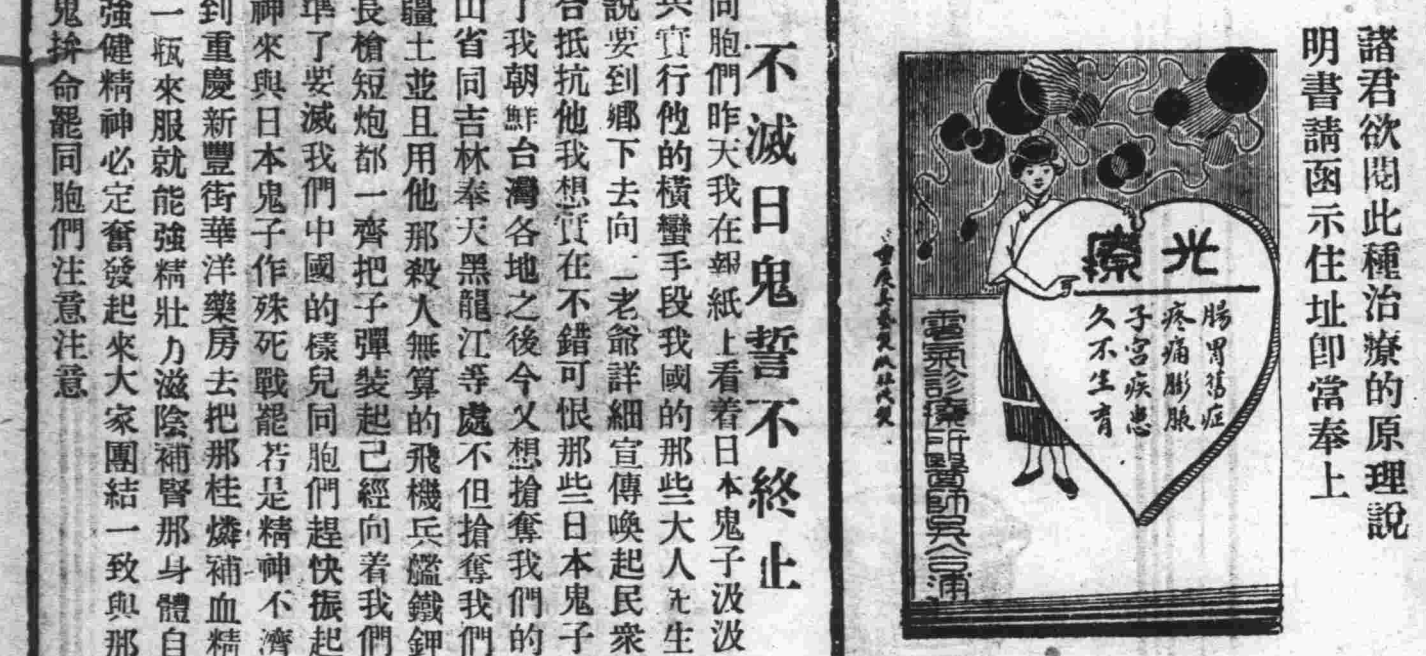 諸君欲閱此種治療的原理說
明書請函示住址卽當奉上
光療
腸胃舊症
疼痛膨脹
子宮疾患
久不生育
電氣診療所醫師吳合浦
不滅日鬼誓不終止
同胞們昨天我在報紙上看着日本鬼子汲汲
實行他的橫蠻手段我國的那些大人先生
說要到鄉下去向二老爺詳細宣傳喚起民衆
合抵抗他我想實在不錯可恨那些日本鬼子
了我朝鮮台灣各地之後今又想搶奪我們的
山省同吉林奉天黑龍江等處不但搶奪我們
疆土並且用他那殺人無算的飛機兵艦鐵鉀
長槍短炮都一齊把子彈裝起己經向着我們
準了要滅我們中國的樣兒同胞們趕快振起
神來與日本鬼子作殊死戰罷若是精神不濟
到重慶新豐街華洋藥房去把那桂燐補血精
一瓶來服就能強精壯力滋陰補腎那身體自
強健精神必定奮發起來大家團結一致與那
鬼拚命罷同胞們注意注意